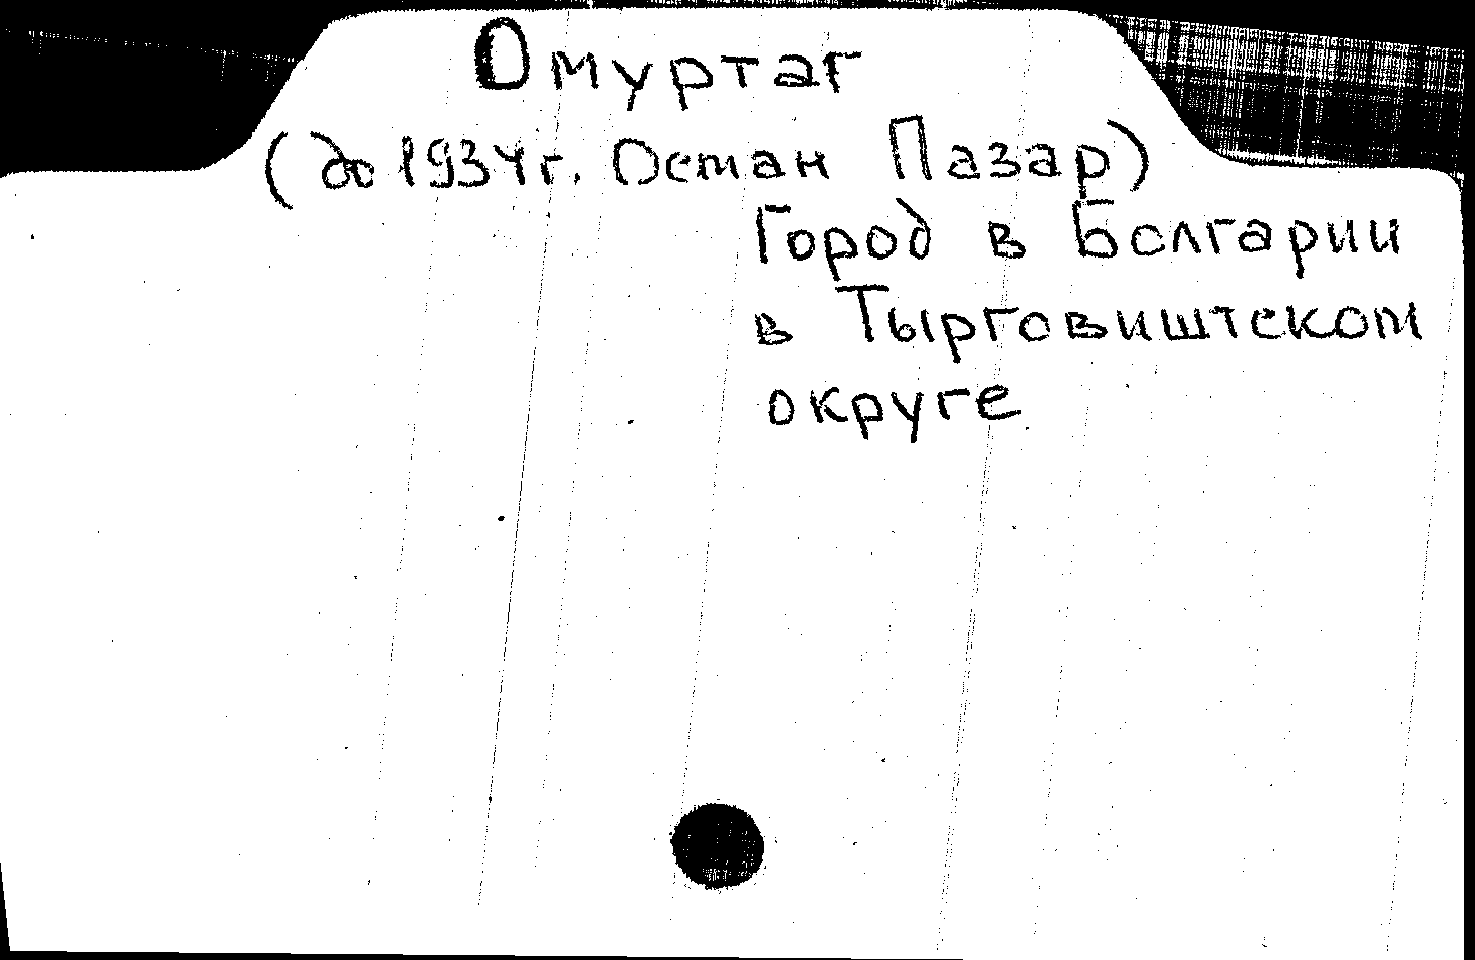 Омуртаг
(до 1934г. Осман Пазар)
Город в Болгарии
в Тырговиштском
округе